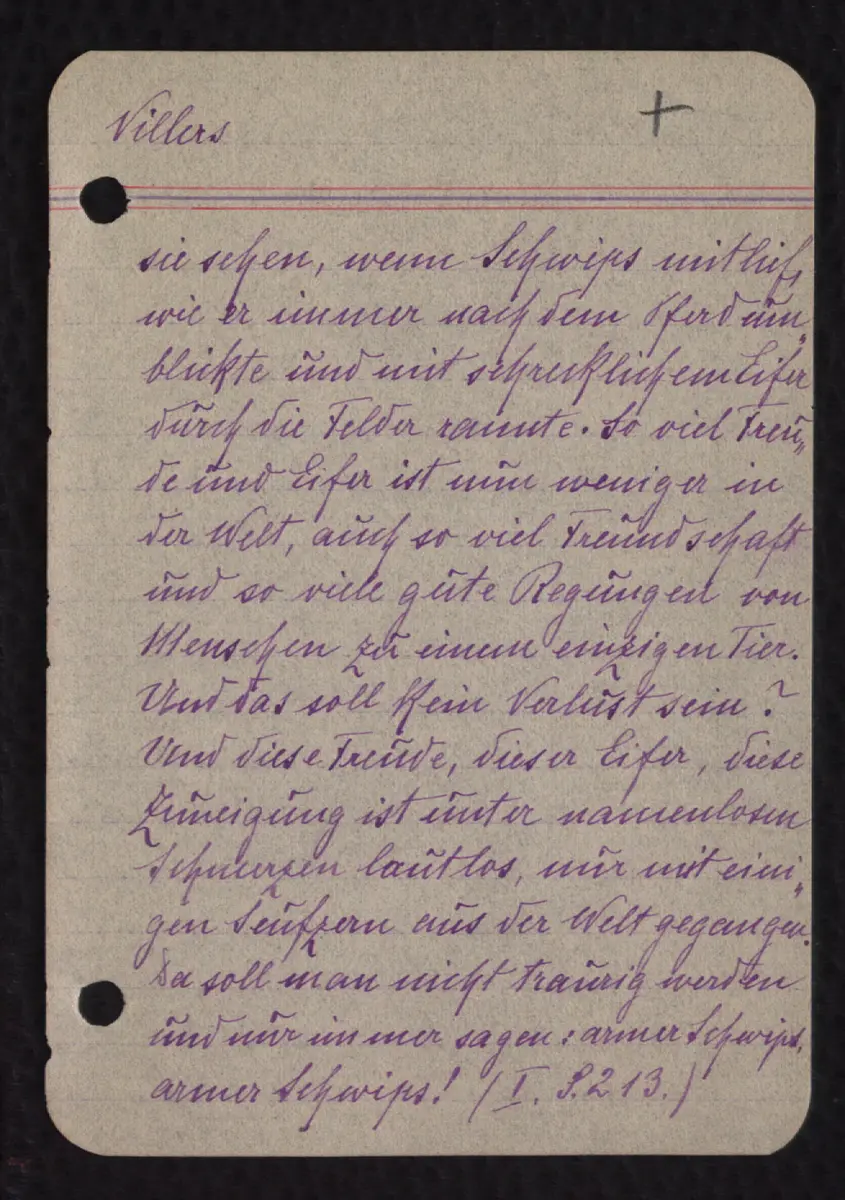 Villers +
sie sehen, wenn Schwips mitlief,
wie er immer nach dem Pferd um„
blickte und mit schrecklichem Eifer
durch die Felder rannte. So viel Freu„
de und Eifer ist nun weniger in
der Welt, auch so viel Freundschaft
und so viele gute Regungen von
Menschen zu einem einzigen Tier.
Und das soll kein Verlust sein?
Und diese Freude, dieser Eifer, diese
Zuneigung ist unter namenlosen
Schmerzen lautlos, nur mit eini„
gen Seufzern aus der Welt gegangen.
Da soll man nicht traurig werden
und nur immer sagen: armer Schwips,
armer Schwips! (I. S. 213.)